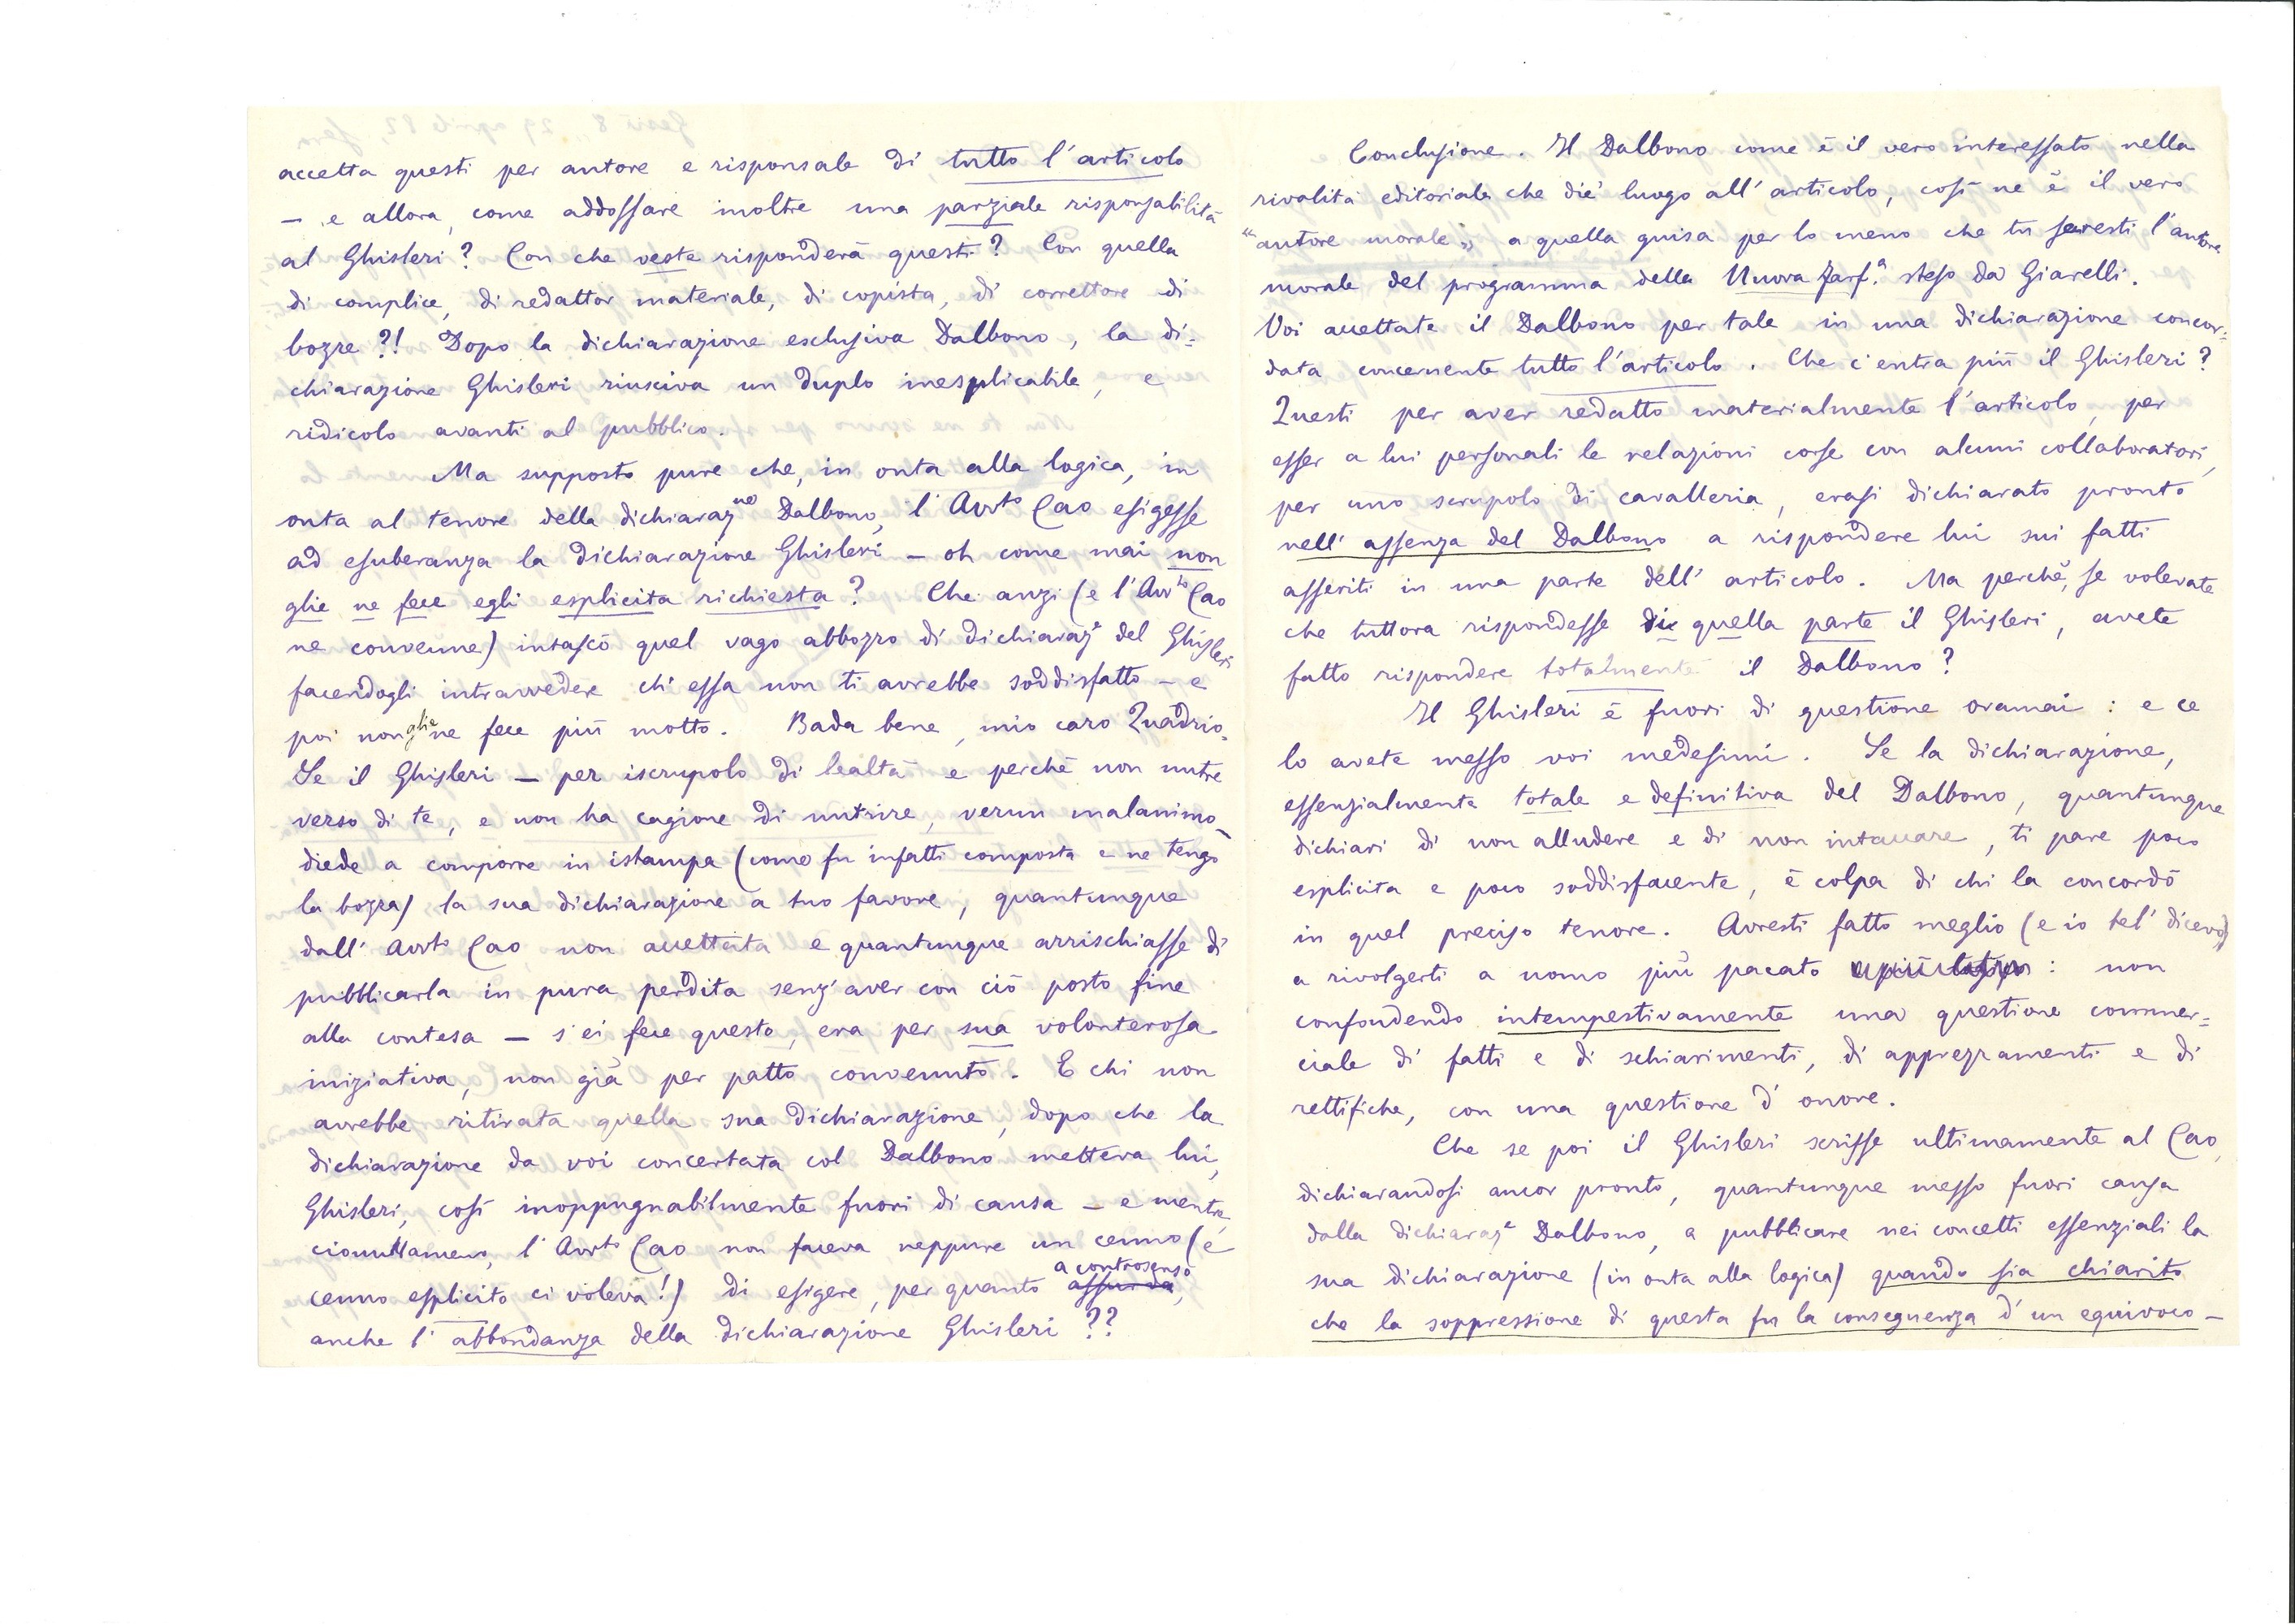 accetta questi per autore e risponsale di tutto l'articolo
— e allora, come addossare inoltre una parziale risponsabilità
al Ghisleri? Con che veste risponderà questi? Con quella
di complice, di redattor materiale, di copista, di correttore di
bozze?! Dopo la dichiarazione esclusiva Dalbono, la di=
chiarazione Ghisleri riusciva un duplo inesplicabile, e
ridicolo avanti al pubblico.
Ma supposto pure che, in onta alla logica, in
onta al tenore della dichiaraz.ne Dalbono, l'Avv.to Cao esigesse
ad esuberanza la dichiarazione Ghisleri — oh come mai non
glie ne fece egli esplicita richiesta? Che anzi (e l'Avv.to Cao
ne convenne) intascò quel vago abbozzo di dichiaraz.e del Ghisleri
facendogli intravvedere ch'essa non ti avrebbe soddisfatto — e
poi non glie ne fece più motto. Bada bene, mio caro Quadrio.
Se il Ghisleri — per iscrupolo di lealtà e perchè non nutre
verso di te, e non ha cagione di nutrire, verun malanimo —
diede a comporre in istampa (come fu infatti composta e ne tengo
la bozza) la sua dichiarazione a tuo favore, quantunque
dall'Avv.to Cao non accettata e quantunque arrischiasse di
pubblicarla in pura perdita senz'aver con ciò posto fine
alla contesa — s'ei fece questo, era per sua volonterosa
iniziativa, non già per patto convenuto. E chi non
avrebbe ritirata quella sua dichiarazione, dopo che la
dichiarazione da voi concertata col Dalbono metteva lui,
Ghisleri, così inoppugnabilmente fuori di causa — e mentre,
ciònullameno, l'Avv.to Cao non faceva neppure un cenno (e
cenno esplicito ci voleva!) di esigere, per quanto assurda a controsenso,
anche l'abbondanza della dichiarazione Ghisleri??
Conclusione. Il Dalbono come è il vero interessato nella
rivalità editoriale che diè luogo all'articolo, così ne è il vero
"autore morale" a quella guisa per lo meno che tu saresti l'autore
morale del programma della Nuova Farf.a steso da Giarelli.
Voi accettate il Dalbono per tale in una dichiarazione concor=
data concernente tutto l'articolo. Che c'entra più il Ghisleri?
Questi per aver redatto materialmente l'articolo, per
esser a lui personali le relazioni corse con alcuni collaboratori,
per uno scrupolo di cavalleria, erasi dichiarato pronto
nell'assenza del Dalbono a rispondere lui sui fatti
asseriti in una parte dell'articolo. Ma perchè, se volevate
che tuttora rispondesse di quella parte il Ghisleri, avete
fatto rispondere totalmente il Dalbono?
Il Ghisleri è fuori di questione oramai: e ce
lo avete messo voi medesimi. Se la dichiarazione,
essenzialmente totale e definitiva del Dalbono, quantunque
dichiari di non alludere e di non intaccare, ti pare poco
esplicita e poco soddisfacente, è colpa di chi la concordò
in quel preciso tenore. Avresti fatto meglio (e io tel' dicevo)
a rivolgerti a uomo più pacato : non
confondendo intempestivamente una questione commer=
ciale di fatti e di schiarimenti, di apprezzamenti e di
rettifiche, con una questione d'onore.
Che se poi il Ghisleri scrisse ultimamente al Cao,
dichiarandosi ancor pronto, quantunque messo fuori causa
dalla dichiaraz.e Dalbono, a pubblicare nei concetti essenziali la
sua dichiarazione (in onta alla logica) quando sia chiarito
che la soppressione di questa fu la conseguenza d'un equivoco —